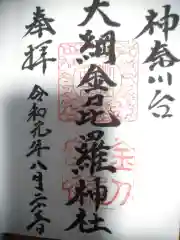 神奈川台
大綱金刀比羅神社
奉拝
令和元年八月二六日